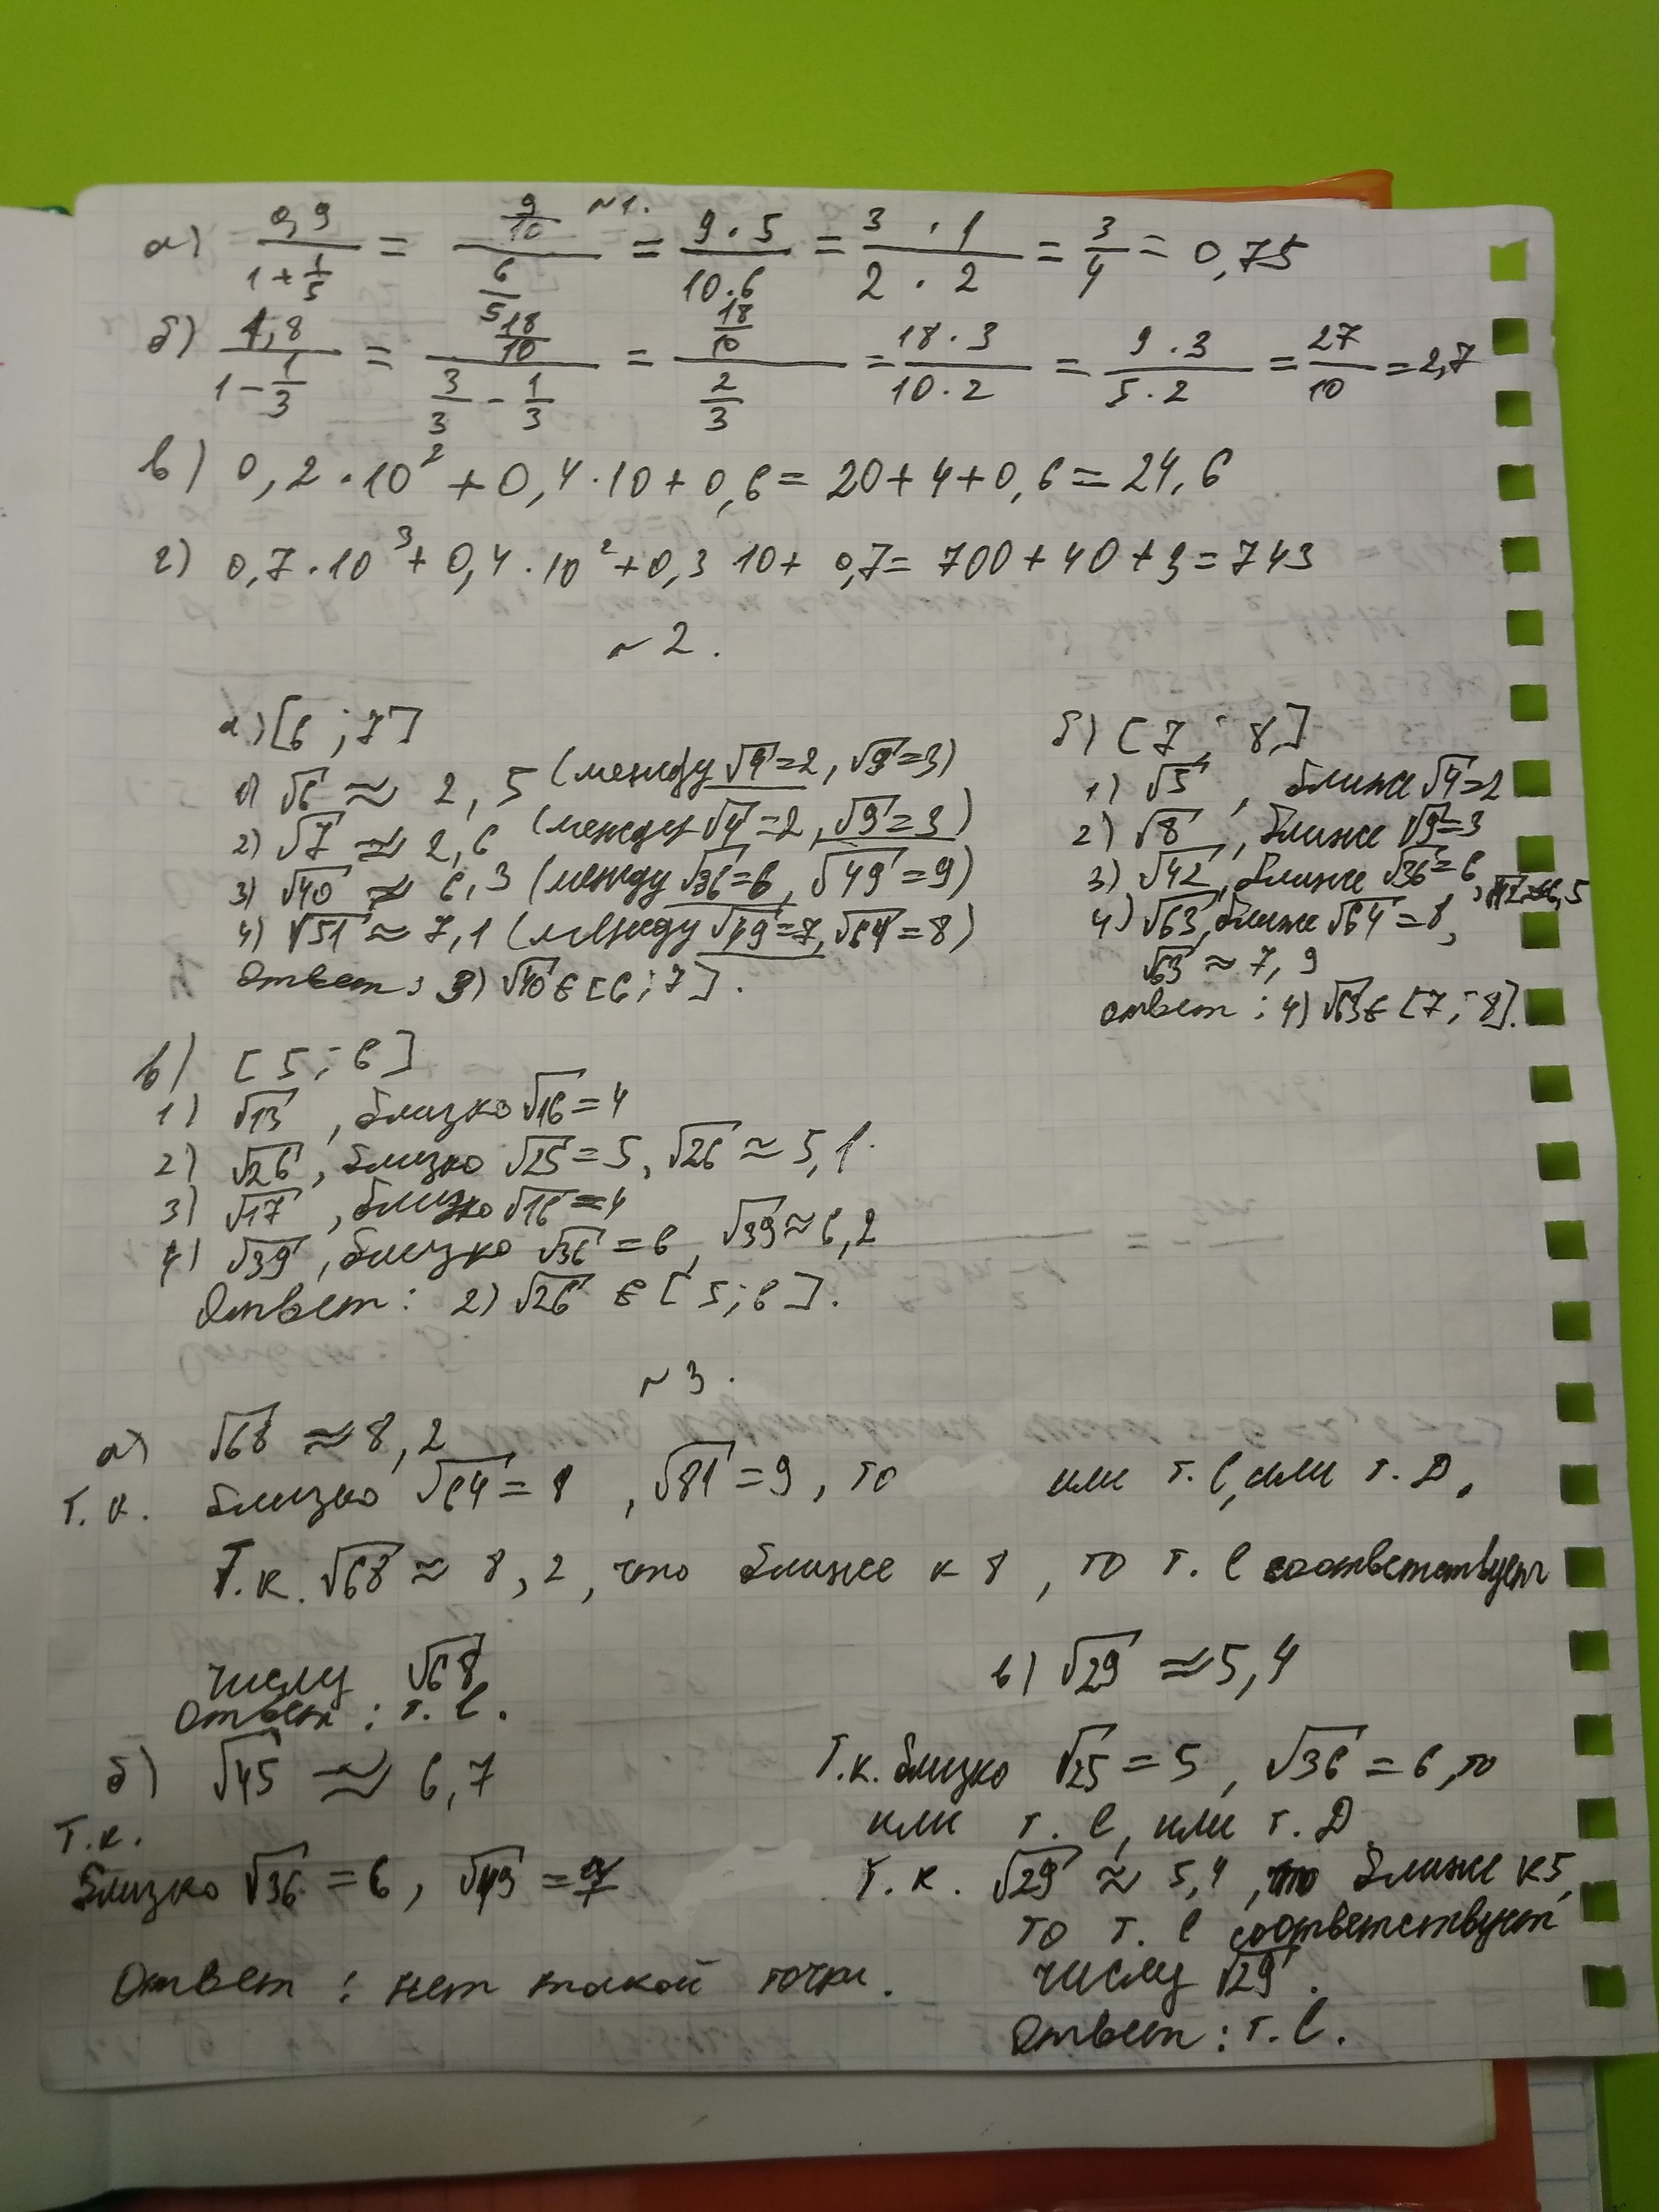 №1.
а) 0,9/(1+1/5) = (9/10)/(6/5) = (9·5)/(10·6) = (3·1)/(2·2) = 3/4 = 0,75
б) 1,8/(1-1/3) = (18/10)/(3/3-1/3) = (18/10)/(2/3) = (18·3)/(10·2) = (9·3)/(5·2) = 27/10 = 2,7
в) 0,2·10² + 0,4·10 + 0,6 = 20+4+0,6 = 24,6
г) 0,7·10³ + 0,4·10² + 0,3 10 + 0,7 = 700+40+3 = 743
№2.
а) [6;7]
1) √6 ≈ 2,5 (между √4=2, √9=3)
2) √7 ≈ 2,6 (между √4=2, √9=3)
3) √40 ≈ 6,3 (между √36=6, √49=9)
4) √51 ≈ 7,1 (между √49=7, √64=8)
Ответ: 3) √40 ∈ [6;7].
б) [7; 8]
1) √5, ближе √4=2
2) √8, ближе √9=3
3) √42, ближе √36=6, √42≈6,5
4) √63, ближе √64=8,
√63 ≈ 7,9
ответ: 4) √63 ∈ [7; 8].
в) [5; 6]
1) √13, близко √16=4
2) √26, близко √25=5, √26 ≈ 5,1.
3) √17, близко √16=4
4) √39, близко √36=6, √39≈6,2
Ответ: 2) √26 ∈ [5;6].
№3.
а) √68 ≈ 8,2
т.к. близко √64=8, √81=9, то или т. С, или т. D.
Т.к. √68 ≈ 8,2, что ближе к 8, то т. С соответствует
числу √68
Ответ: т. С.
б) √45 ≈ 6,7
т.к.
близко √36 = 6, √49 = 7
Ответ: нет такой точки.
в) √29 ≈ 5,4
Т.к. близко √25 = 5, √36 = 6, то
или т. С, или т. D
т.к. √29 ≈ 5,4, что ближе к 5,
то т. С соответствует
числу √29.
Ответ: т. С.